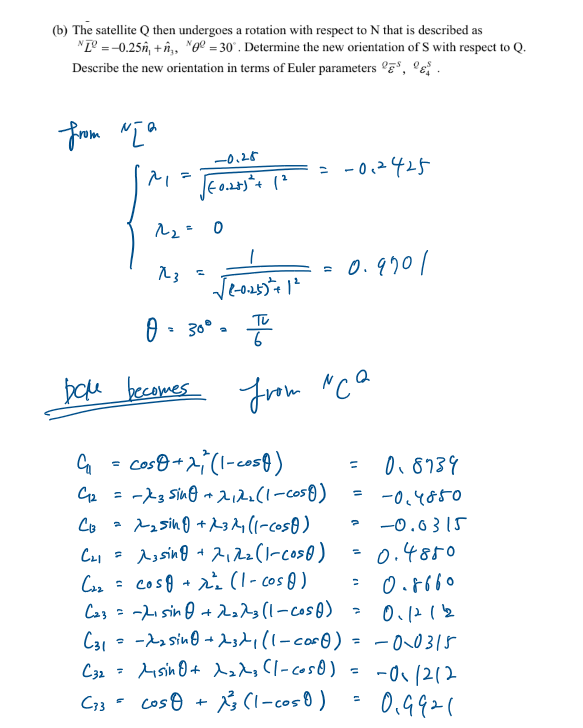 (b) The satellite Q then undergoes a rotation with respect to N that is described as
ᴺL̄^Q = −0.25n̂₁ + n̂₃, ᴺθ^Q = 30°. Determine the new orientation of S with respect to Q.
Describe the new orientation in terms of Euler parameters ^Qε̄^S, ^Qε₄^S .
from ᴺL̄^Q
λ₁ = −0.25 / √((−0.25)² + 1²) = −0.2425
λ₂ = 0
λ₃ = 1 / √((−0.25)² + 1²) = 0.9701
θ = 30° = π/6
becomes from ᴺC^Q
C₁₁ = cosθ + λ₁²(1−cosθ) = 0.8739
C₁₂ = −λ₃ sinθ + λ₁λ₂(1−cosθ) = −0.4850
C₁₃ = λ₂ sinθ + λ₃λ₁(1−cosθ) = −0.0315
C₂₁ = λ₃ sinθ + λ₁λ₂(1−cosθ) = 0.4850
C₂₂ = cosθ + λ₂²(1−cosθ) = 0.8660
C₂₃ = −λ₁ sinθ + λ₂λ₃(1−cosθ) = 0.1212
C₃₁ = −λ₂ sinθ + λ₃λ₁(1−cosθ) = −0.0315
C₃₂ = λ₁ sinθ + λ₂λ₃(1−cosθ) = −0.1212
C₃₃ = cosθ + λ₃²(1−cosθ) = 0.9921